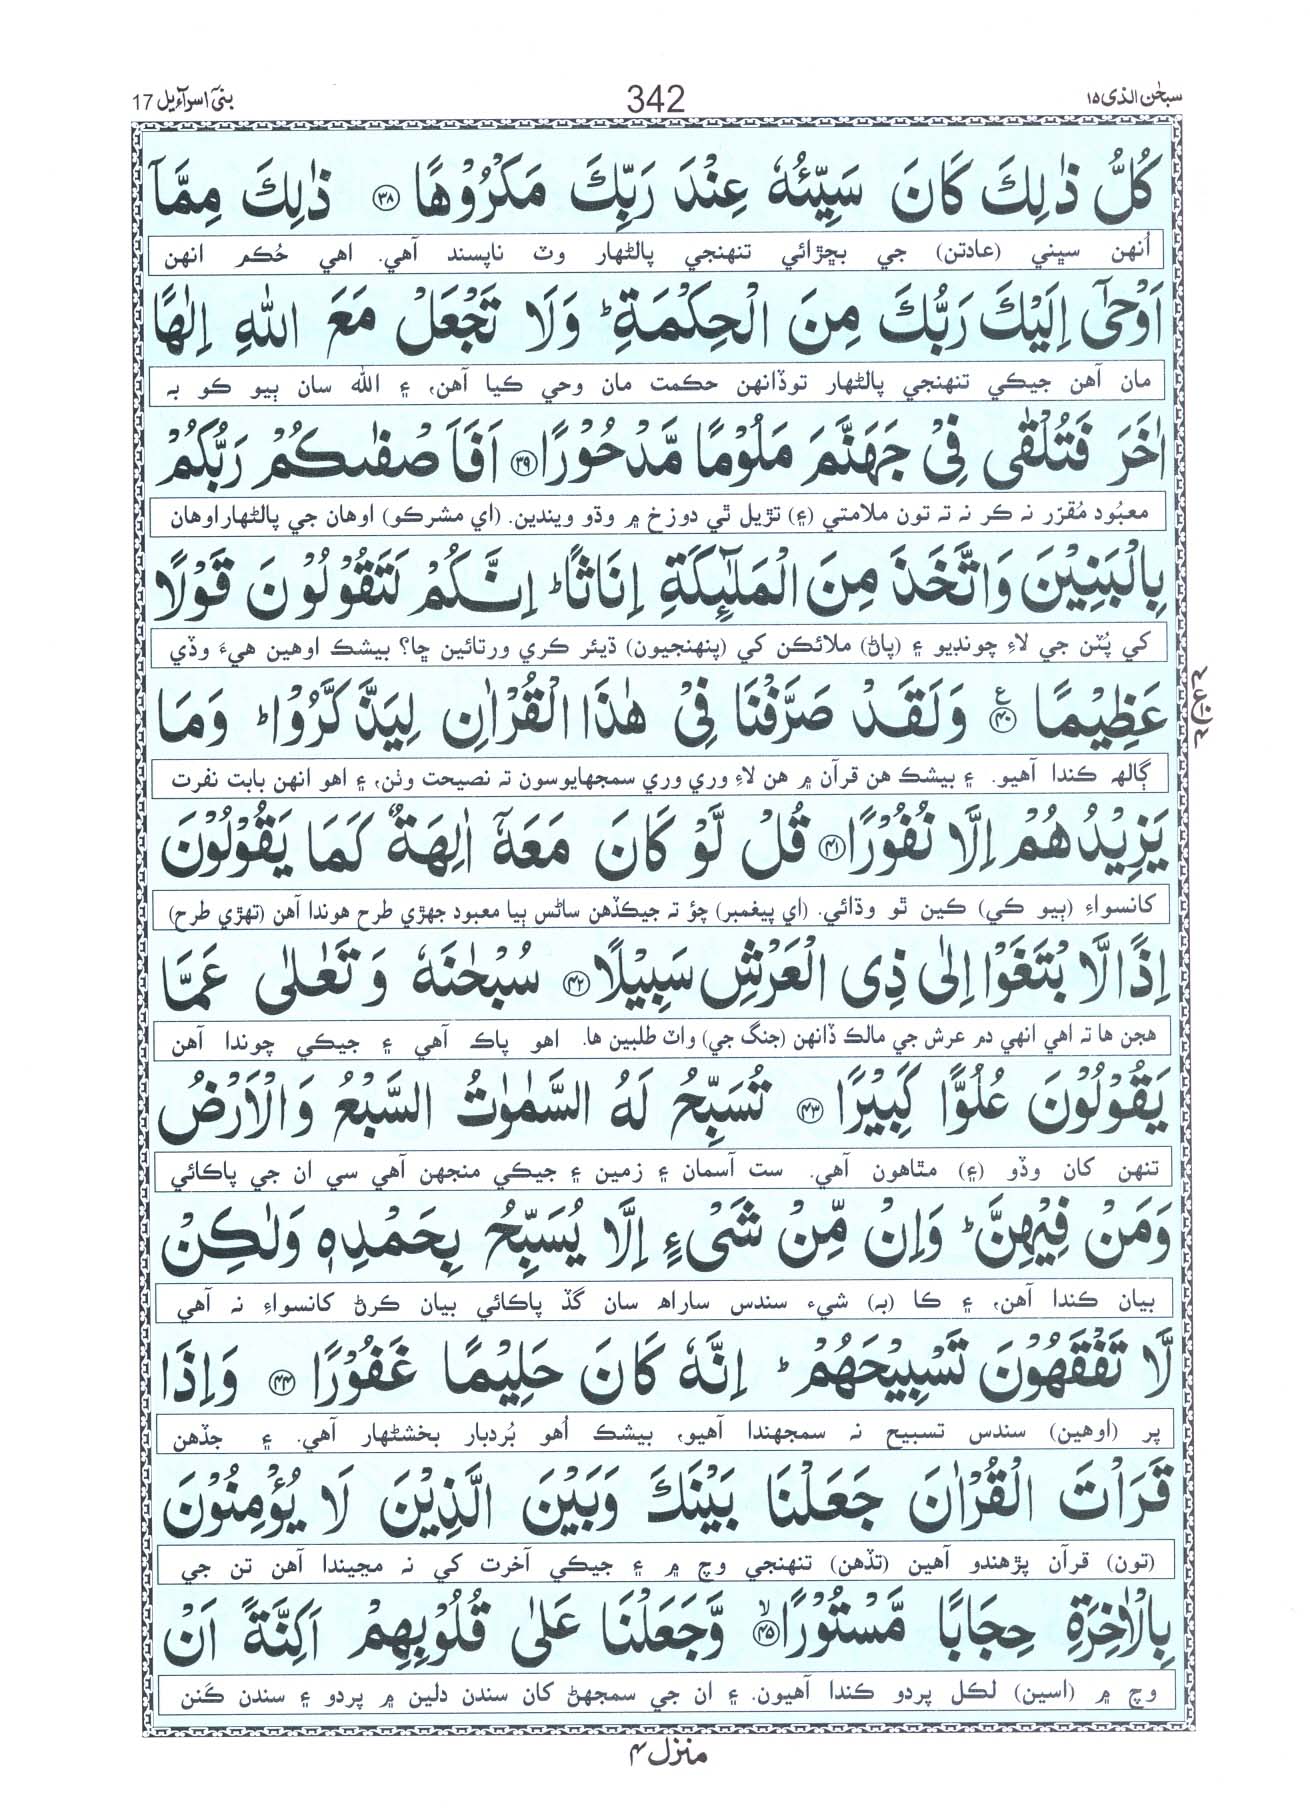 سبحٰن الذی ۱۵
342
بنیٓ اسرآءیل 17
كُلُّ ذٰلِكَ كَانَ سَيِّئُهٗ عِنْدَ رَبِّكَ مَكْرُوْهًا ۝۳۸ ذٰلِكَ مِمَّآ
اُنهن سڀني (عادتن) جي بڇڙائي تنهنجي پالڻهار وٽ ناپسند آهي. اهي حُڪم انهن
اَوْحٰٓى اِلَيْكَ رَبُّكَ مِنَ الْحِكْمَةِ ؕ وَلَا تَجْعَلْ مَعَ اللّٰهِ اِلٰهًا
مان آهن جيڪي تنهنجي پالڻهار توڏانهن حڪمت مان وحي ڪيا آهن، ۽ الله سان ٻيو ڪو به
اٰخَرَ فَتُلْقٰى فِيْ جَهَنَّمَ مَلُوْمًا مَّدْحُوْرًا ۝۳۹ اَفَاَصْفٰىكُمْ رَبُّكُمْ
معبُود مُقرّر نہ ڪر نہ تہ تون ملامتي (۽) تڙيل ٿي دوزخ ۾ وڌو ويندين. (اي مشرڪو) اوهان جي پالڻهار اوهان
بِالْبَنِيْنَ وَاتَّخَذَ مِنَ الْمَلٰٓئِكَةِ اِنَاثًا ؕ اِنَّكُمْ لَتَقُوْلُوْنَ قَوْلًا
کي پُٽن جي لاءِ چونڊيو ۽ (پاڻ) ملائڪن کي (پنهنجيون) ڌيئر ڪري ورتائين ڇا؟ بيشڪ اوهين هيءَ وڏي
عَظِيْمًا ۝۴۰ ع وَلَقَدْ صَرَّفْنَا فِيْ هٰذَا الْقُرْاٰنِ لِيَذَّكَّرُوْا ؕ وَمَا
ڳالهہ ڪندا آهيو. ۽ بيشڪ هن قرآن ۾ هن لاءِ وري وري سمجهايوسون تہ نصيحت وٺن، ۽ اهو انهن بابت نفرت
يَزِيْدُهُمْ اِلَّا نُفُوْرًا ۝۴۱ قُلْ لَّوْ كَانَ مَعَهٗٓ اٰلِهَةٌ كَمَا يَقُوْلُوْنَ
کانسواءِ (ٻيو ڪي) ڪين ٿو وڌائي. (اي پيغمبر) چؤ تہ جيڪڏهن ساڻس ٻيا معبود جهڙي طرح هوندا آهن (تهڙي طرح)
اِذًا لَّابْتَغَوْا اِلٰى ذِي الْعَرْشِ سَبِيْلًا ۝۴۲ سُبْحٰنَهٗ وَتَعٰلٰى عَمَّا
هجن ها تہ اهي انهي دم عرش جي مالڪ ڏانهن (جنگ جي) واٽ طلبين ها. اهو پاڪ آهي ۽ جيڪي چوندا آهن
يَقُوْلُوْنَ عُلُوًّا كَبِيْرًا ۝۴۳ تُسَبِّحُ لَهُ السَّمٰوٰتُ السَّبْعُ وَالْاَرْضُ
تنهن کان وڏو (۽) مٿاهون آهي. ست آسمان ۽ زمين ۽ جيڪي منجهن آهي سي ان جي پاڪائي
وَمَنْ فِيْهِنَّ ؕ وَاِنْ مِّنْ شَيْءٍ اِلَّا يُسَبِّحُ بِحَمْدِهٖ وَلٰكِنْ
بيان ڪندا آهن، ۽ ڪا (به) شيء سندس ساراهہ سان گڏ پاڪائي بيان ڪرڻ کانسواءِ نہ آهي
لَّا تَفْقَهُوْنَ تَسْبِيْحَهُمْ ؕ اِنَّهٗ كَانَ حَلِيْمًا غَفُوْرًا ۝۴۴ وَاِذَا
پر (اوهين) سندس تسبيح نہ سمجهندا آهيو، بيشڪ اُهو بُردبار بخشڻهار آهي. ۽ جڏهن
قَرَاْتَ الْقُرْاٰنَ جَعَلْنَا بَيْنَكَ وَبَيْنَ الَّذِيْنَ لَا يُؤْمِنُوْنَ
(تون) قرآن پڙهندو آهين (تڏهن) تنهنجي وچ ۾ ۽ جيڪي آخرت کي نہ مڃيندا آهن تن جي
بِالْاٰخِرَةِ حِجَابًا مَّسْتُوْرًا ۝۴۵ ۙ وَّجَعَلْنَا عَلٰى قُلُوْبِهِمْ اَكِنَّةً اَنْ
وچ ۾ (اسين) لڪل پردو ڪندا آهيون. ۽ ان جي سمجهڻ کان سندن دلين ۾ پردو ۽ سندن ڪَنن
منزل ۴